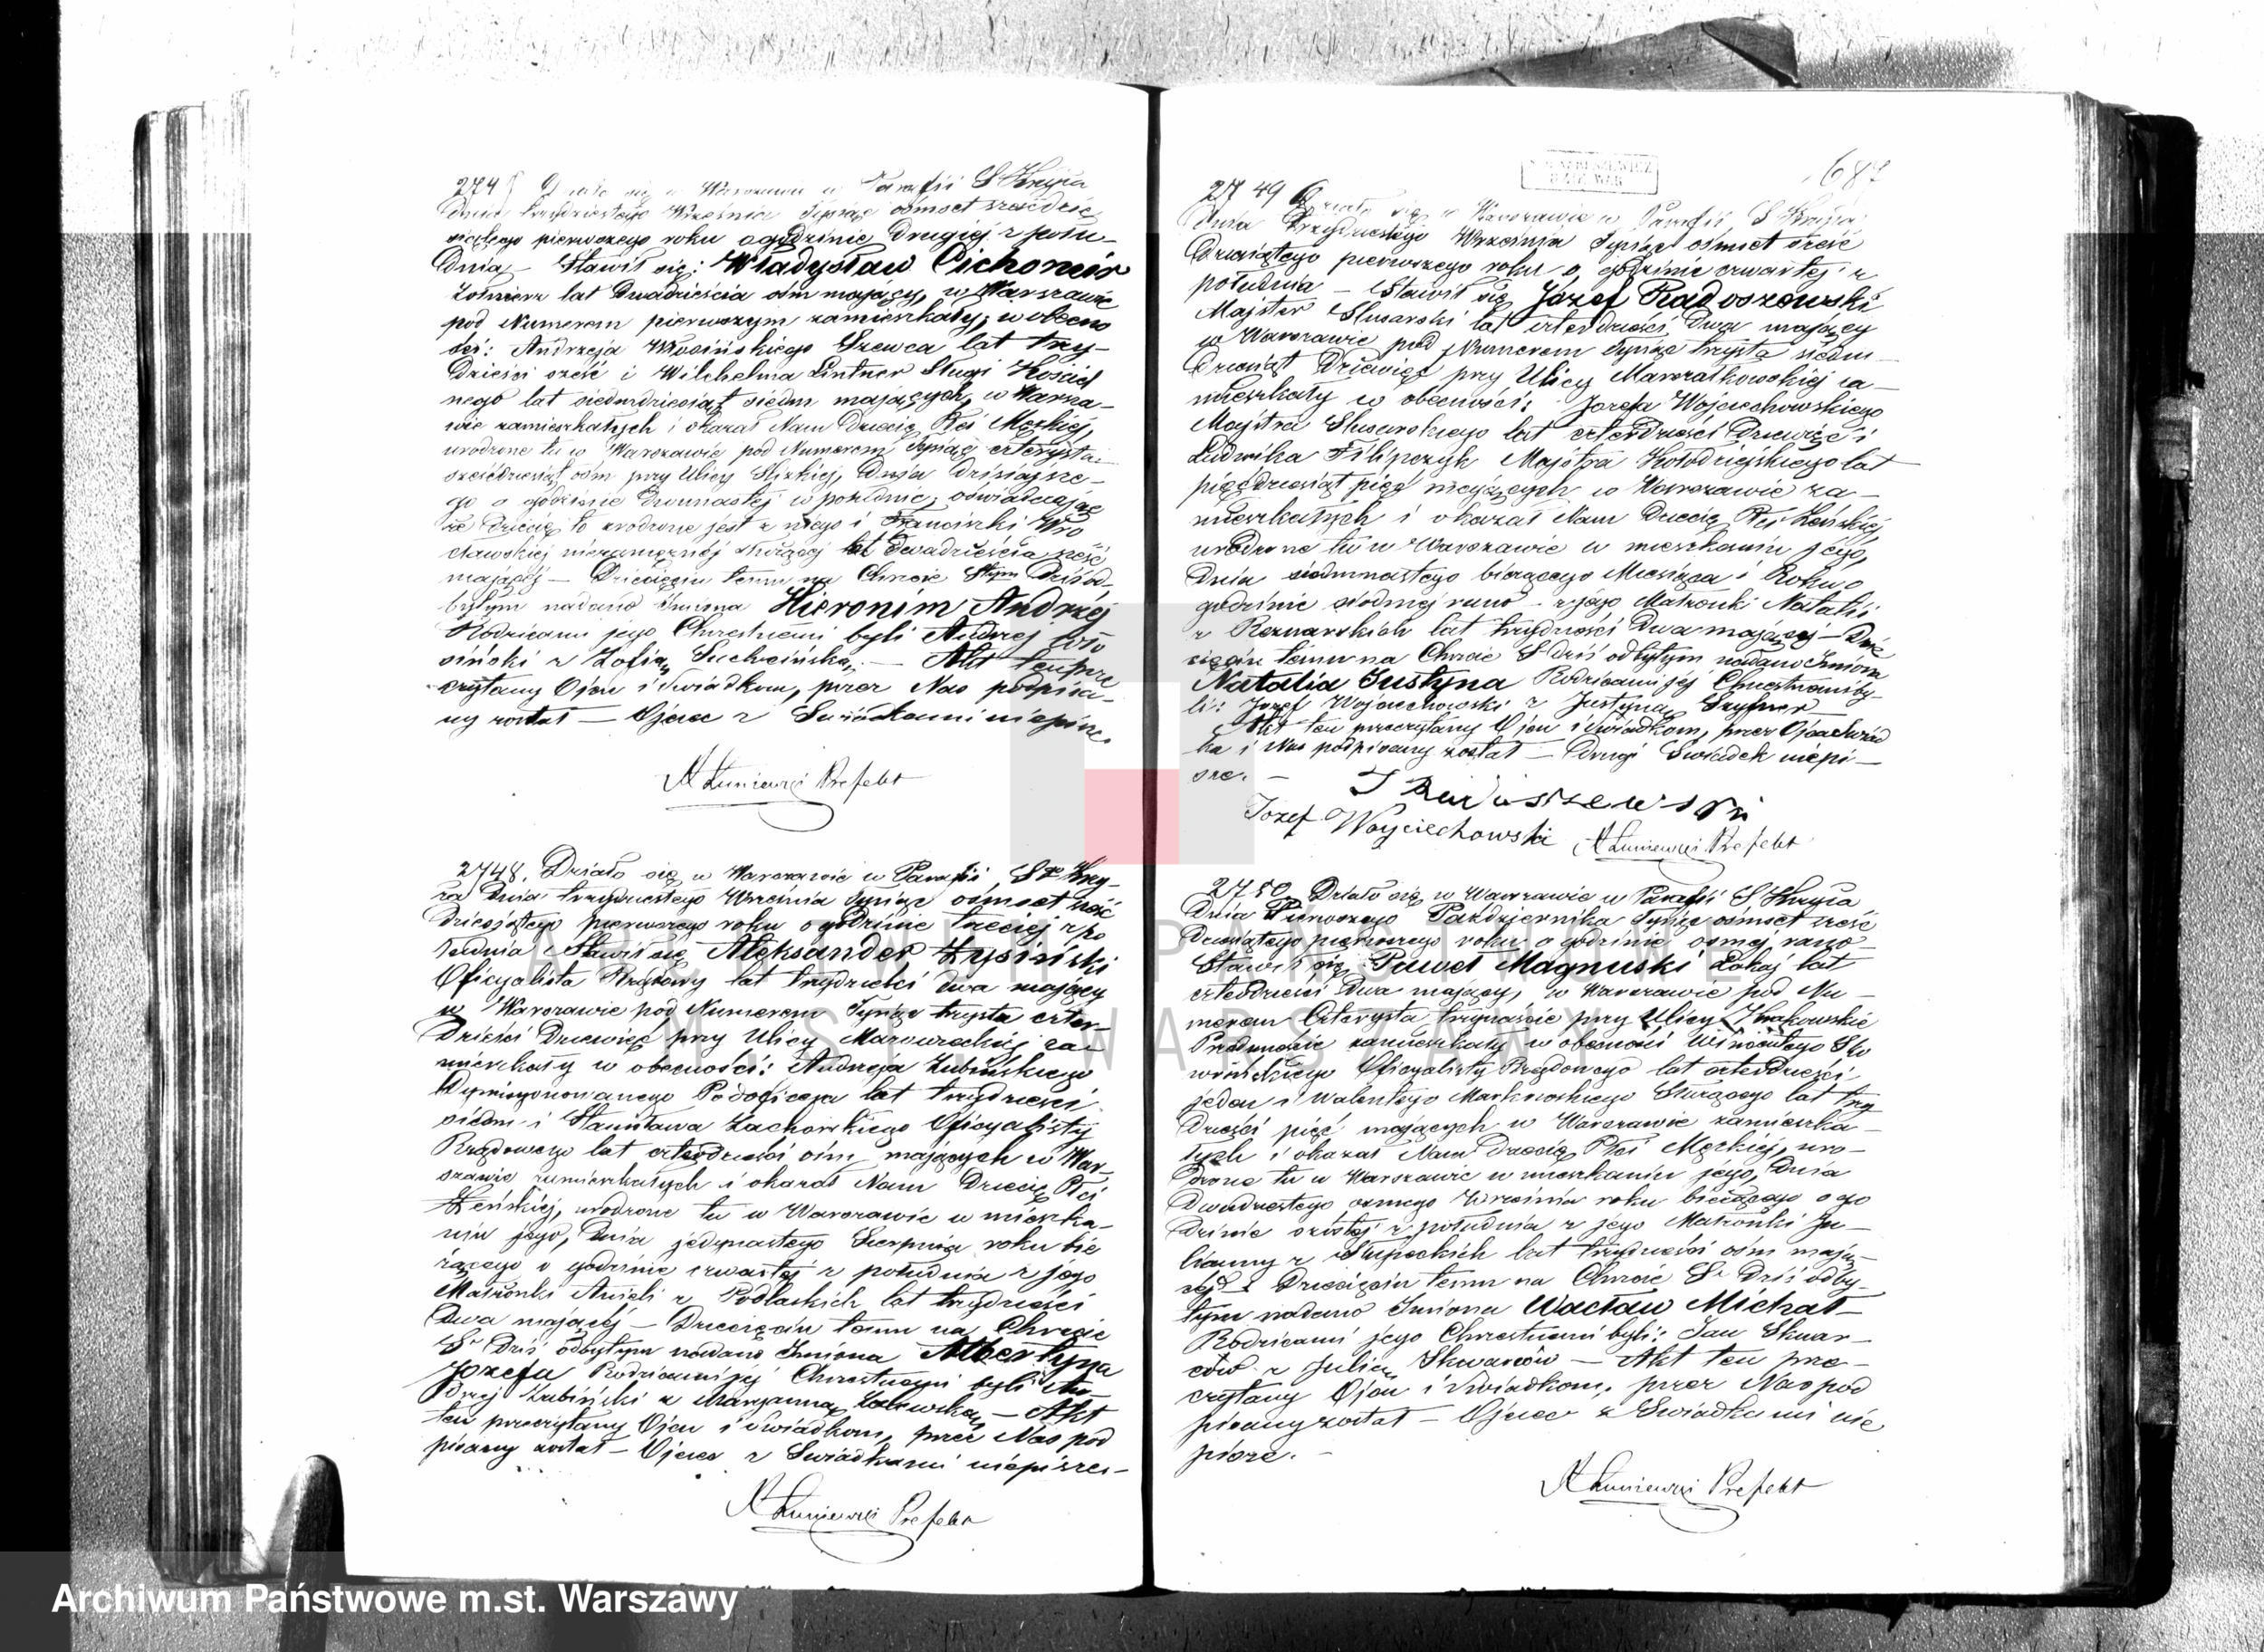 274
Działo się w Warszawie w Parafii S Krzyża
Dnia trzydziestego Września Tysiąc ośmset sześćdzie
siątego pierwszego roku o godzinie Drugiej z połu-
dnia – Stawił się: Władysław Cichomir
Żołnierz lat Dwadzieścia ośm mający, w Warszawie
pod Numerem pierwszym zamieszkały, w obecno
ści: Andrzeja Włosińskiego Szewca lat trzy-
dzieści sześć i Wilchelma Lintner Sługi Kościel
nego lat siedmdziesiąt siedm mających, w Warsza-
wie zamieszkałych i okazał Nam Dziecię Płci Męzkiej,
urodzone tu w Warszawie pod Numerem Tysiąc czterysta
sześćdziesiąt ośm przy Ulicy Śliskiej, Dnia dzisiejsze-
go o godzinie Dwunastej w południe, oświadczając
że Dziecię to zrodzone jest z niego i Franciszki Wro
cławskiej niezamężnej służącej lat Dwadzieścia sześć
mającej – Dziecięciu temu na Chrzcie Stym Dziś od-
bytym nadano Imiona Hieronim Andrzej
Rodzicami jego Chrzestnemi byli Andrzej Wło
siński z Zofią Suchcińską. – Akt ten prze
czytany Ojcu i Świadkom, przez Nas podpisa-
ny został – Ojciec z Świadkami niepiszą.
A Łuniewski Prefekt
2748. Działo się w Warszawie w Parafii Sgo Krzy-
ża Dnia trzydziestego Września Tysiąc ośmset sześć
dziesiątego pierwszego roku o godzinie trzeciej z po
łudnia Stawił się Aleksander Łysiński
Oficyalista Rządowy lat trzydzieści dwa mający
w Warszawie pod Numerem Tysiąc trzysta czter-
dzieści Dziewięć przy Ulicy Mazowieckiej za-
mieszkały w obecności: Andrzeja Żubińskiego
Dymisyonowanego Podoficera lat trzydzieści
siedm i Stanisława Zachorskiego Oficyalisty
Rządowego lat czterdzieści ośm mających w War-
szawie zamieszkałych i okazał Nam Dziecię Płci
Żeńskiej, urodzone tu w Warszawie w mieszka-
niu jego, Dnia jedynastego Sierpnia roku bie
żącego o godzinie czwartej z południa z jego
Małżonki Anieli z Podlaskich lat trzydzieści
Dwa mającej – Dziecięciu temu na Chrzcie
S. Dziś odbytym nadano Imiona Albertyna
Jozefa Rodzicami jej Chrzestnemi byli An-
drzej Żubiński z Maryanną Zalewską – Akt
ten przeczytany Ojcu i Świadkom, przez Nas pod
pisany został – Ojciec z Świadkami niepiszą –
A Łuniewski Prefekt
687
2749 Działo się w Warszawie w Parafii S Krzyża
Dnia Trzydziestego Września Tysiąc ośmset sześć
Dziesiątego pierwszego roku o godzinie czwartej z
południa – Stawił się Józef Radoszewski
Majster Ślusarski lat czterdzieści Dwa mający
w Warszawie pod Numerem Tysiąc trzysta siedm-
dziesiąt Dziewięć przy Ulicy Marszałkowskiej za-
mieszkały w obecności: Jozefa Wojciechowskiego
Majstra Ślusarskiego lat czterdzieści Dziewięć i
Ludwika Filipczyk Majstra Kołodziejskiego lat
pięćdziesiąt pięć mających w Warszawie za-
mieszkałych i okazał Nam Dziecię Płci Żeńskiej,
urodzone tu w Warszawie w mieszkaniu jego,
Dnia siedmnastego bieżącego Miesiąca i Roku o
godzinie siodmej rano z jego Małżonki Natalii
z lat trzydzieści Dwa mającej – Dzie
cięciu temu na Chrzcie S Dziś odbytym nadano Imiona
Natalia Justyna Rodzicami jej Chrzestnemi by-
li: Jozef Wojciechowski z Justyną Szyfner
Akt ten przeczytany Ojcu i Świadkom, przez Ojca Świad
ka i Nas podpisany został – Drugi Świadek niepi-
sze. –
J Radoszewski
Jozef Woyciechowski A Łuniewski Prefekt
2750. Działo się w Warszawie w Parafii S. Krzyża
Dnia Pierwszego Października Tysiąc ośmset sześć
Dziesiątego pierwszego roku o godzinie osmej rano
Stawił się Paweł Magnuski Lokaj lat
czterdzieści Dwa mający, w Warszawie pod Nu-
merem Czterysta trzynaście przy Ulicy Krakowskie
Przedmieście zamieszkały w obecności Wincentego
Oficyalisty Rządowego lat czterdzieści
jeden i Walentego Służącego lat trzy
dzieści pięć mających w Warszawie zamieszka-
łych i okazał Nam Dziecię Płci Męzkiej, uro-
dzone tu w Warszawie w mieszkaniu jego, Dnia
Dwudziestego osmego Września roku bieżącego o go
dzinie szóstej z południa z jego Małżonki Ju-
lianny z Słupeckich lat trzydzieści ośm mają-
cej – Dziecięciu temu na Chrzcie S. Dziś odby-
tym nadano Imiona Wacław Michał
Rodzicami jego Chrzestnemi byli: Jan Skwar-
ców z Julią Skwarców – Akt ten prze-
czytany Ojcu i Świadkom, przez Nas pod
pisany został – Ojciec z Świadkami nie
piszą. –
A Łuniewski Prefekt
ARCHIWUM PAŃSTWOWE
M.ST. WARSZAWY
Archiwum Państwowe m.st. Warszawy